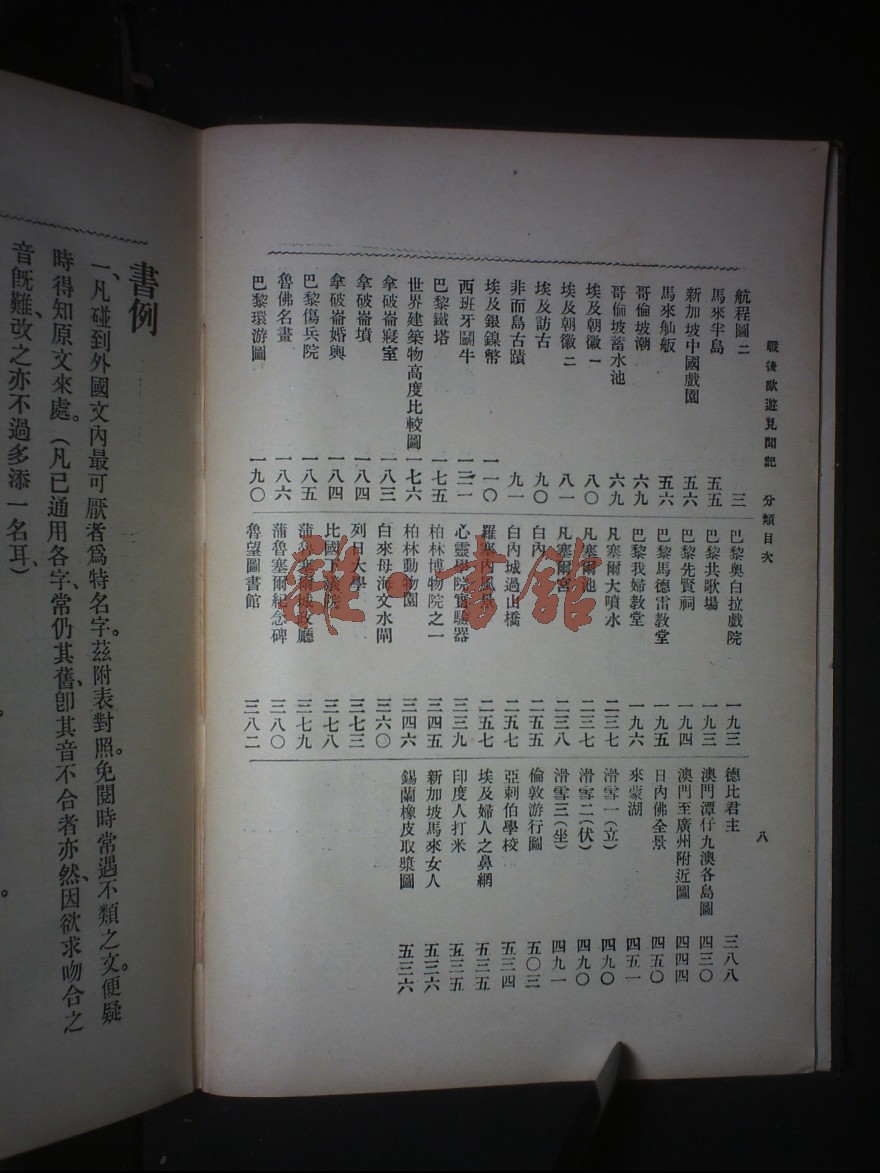 戰後歐遊見聞記 分類目次 八
航程圖二 三
馬來半島 五五
新加坡中國戲園 五六
馬來舢舨 五六
哥倫坡潮 六九
哥倫坡蓄水池 六九
埃及朝徽一 八〇
埃及朝徽二 八一
埃及訪古 九〇
非而島古蹟 九一
埃及銀鎳幣 一一〇
西班牙鬭牛 一三一
巴黎鐵塔 一七五
世界建築物高度比較圖 一七六
拿破崙寢室 一八三
拿破崙墳 一八四
拿破崙婚輿 一八四
巴黎傷兵院 一八五
魯佛名畫 一八六
巴黎環游圖 一九〇
巴黎奧白拉戲院 一九三
巴黎共歌場 一九三
巴黎先賢祠 一九四
巴黎馬德雷教堂 一九五
巴黎我婦教堂 一九六
凡塞爾大噴水 二三七
凡塞爾池 二三七
凡塞爾宮 二三八
白內 二五五
白內城過山橋 二五七
羅塞內風景 二五七
心靈學院實驗器 三三九
柏林博物院之一 三四五
柏林動物園 三四六
白來母海文水閘 三六〇
列日大學 三七三
比國下議院 三七八
蒲魯塞爾城政廳 三七九
蒲魯塞爾紀念碑 三八〇
魯望圖書館 三八二
德比君主 三八八
澳門潭仔九澳各島圖 四三〇
澳門至廣州附近圖 四四四
日內佛全景 四五〇
來蒙湖 四五一
滑雪一(立) 四九〇
滑雪二(伏) 四九〇
滑雪三(坐) 四九一
倫敦游行圖 五〇三
亞剌伯學校 五三四
埃及婦人之鼻網 五三五
印度人打米 五三五
新加坡馬來女人 五三六
錫蘭橡皮取漿圖 五三六
書例
一、凡碰到外國文內最可厭者爲特名字。茲附表對照。免閱時常遇不類之文。便疑
時得知原文來處。(凡已通用各字、常仍其舊、卽其音不合者亦然、因欲求吻合之
音旣難、改之亦不過多添一名耳)
雜·書館